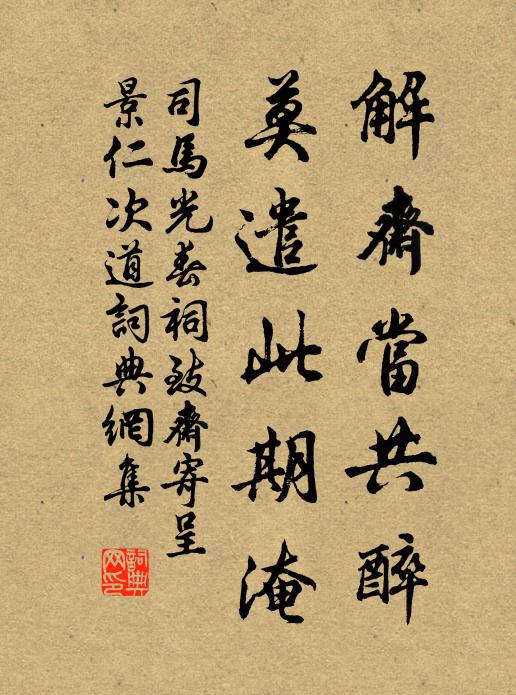 解齋當共醉
莫遣此期淹
司馬光春祠致齋寄呈
景仁次道詞典網集
詞典
网印